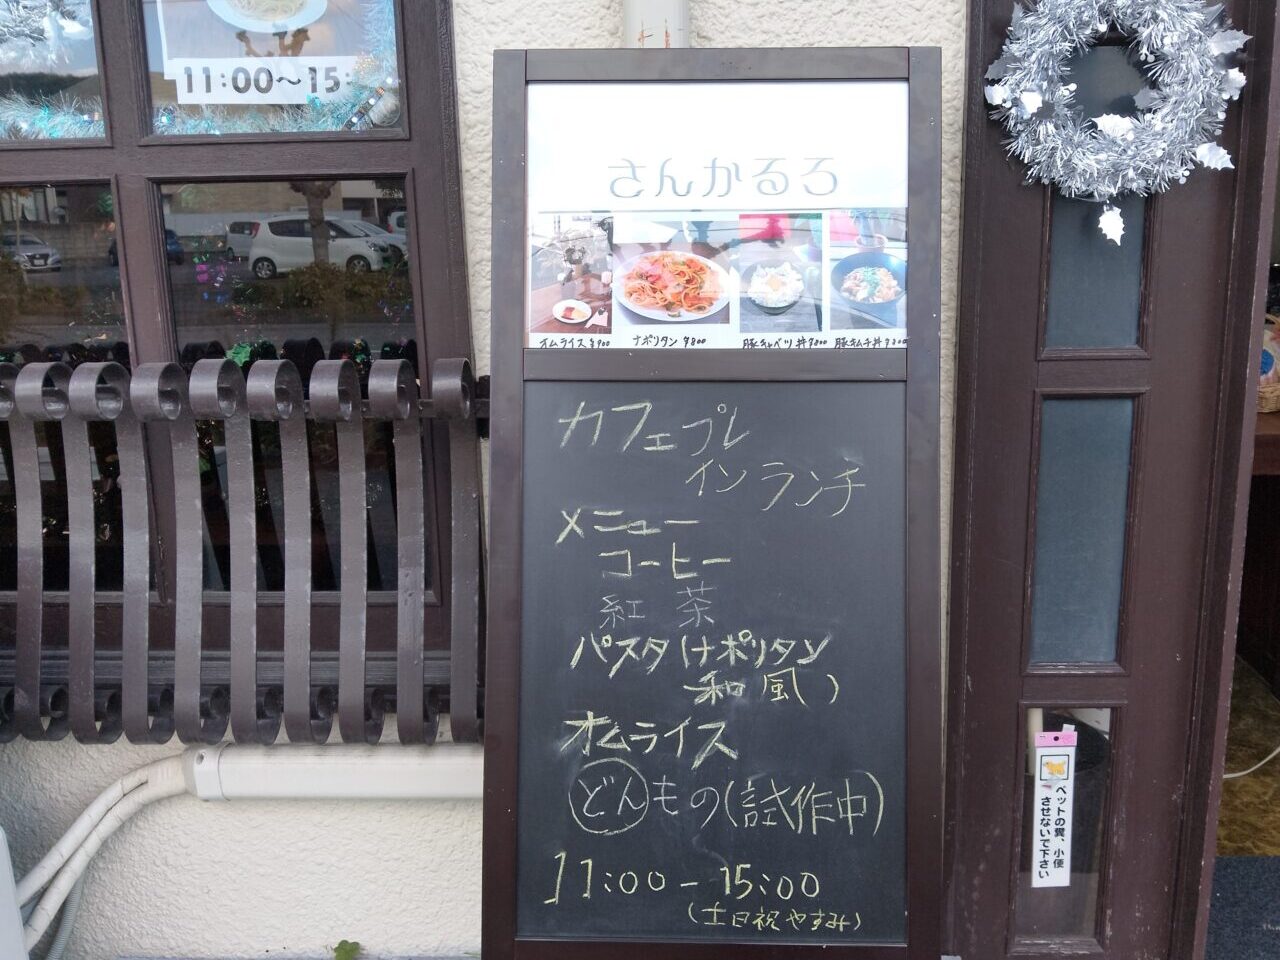 11:00〜15:
さんかるろ
オムライス ¥900
ナポリタン ¥800
豚キャベツ丼 ¥800
豚キムチ丼 ¥800
カフェプレ
イン ランチ
メニュー
コーヒー
紅茶
パスタ(ナポリタン
和風)
オムライス
どんもの(試作中)
11:00-15:00
(土日祝やすみ)
ペットの糞、小便
させないで下さい